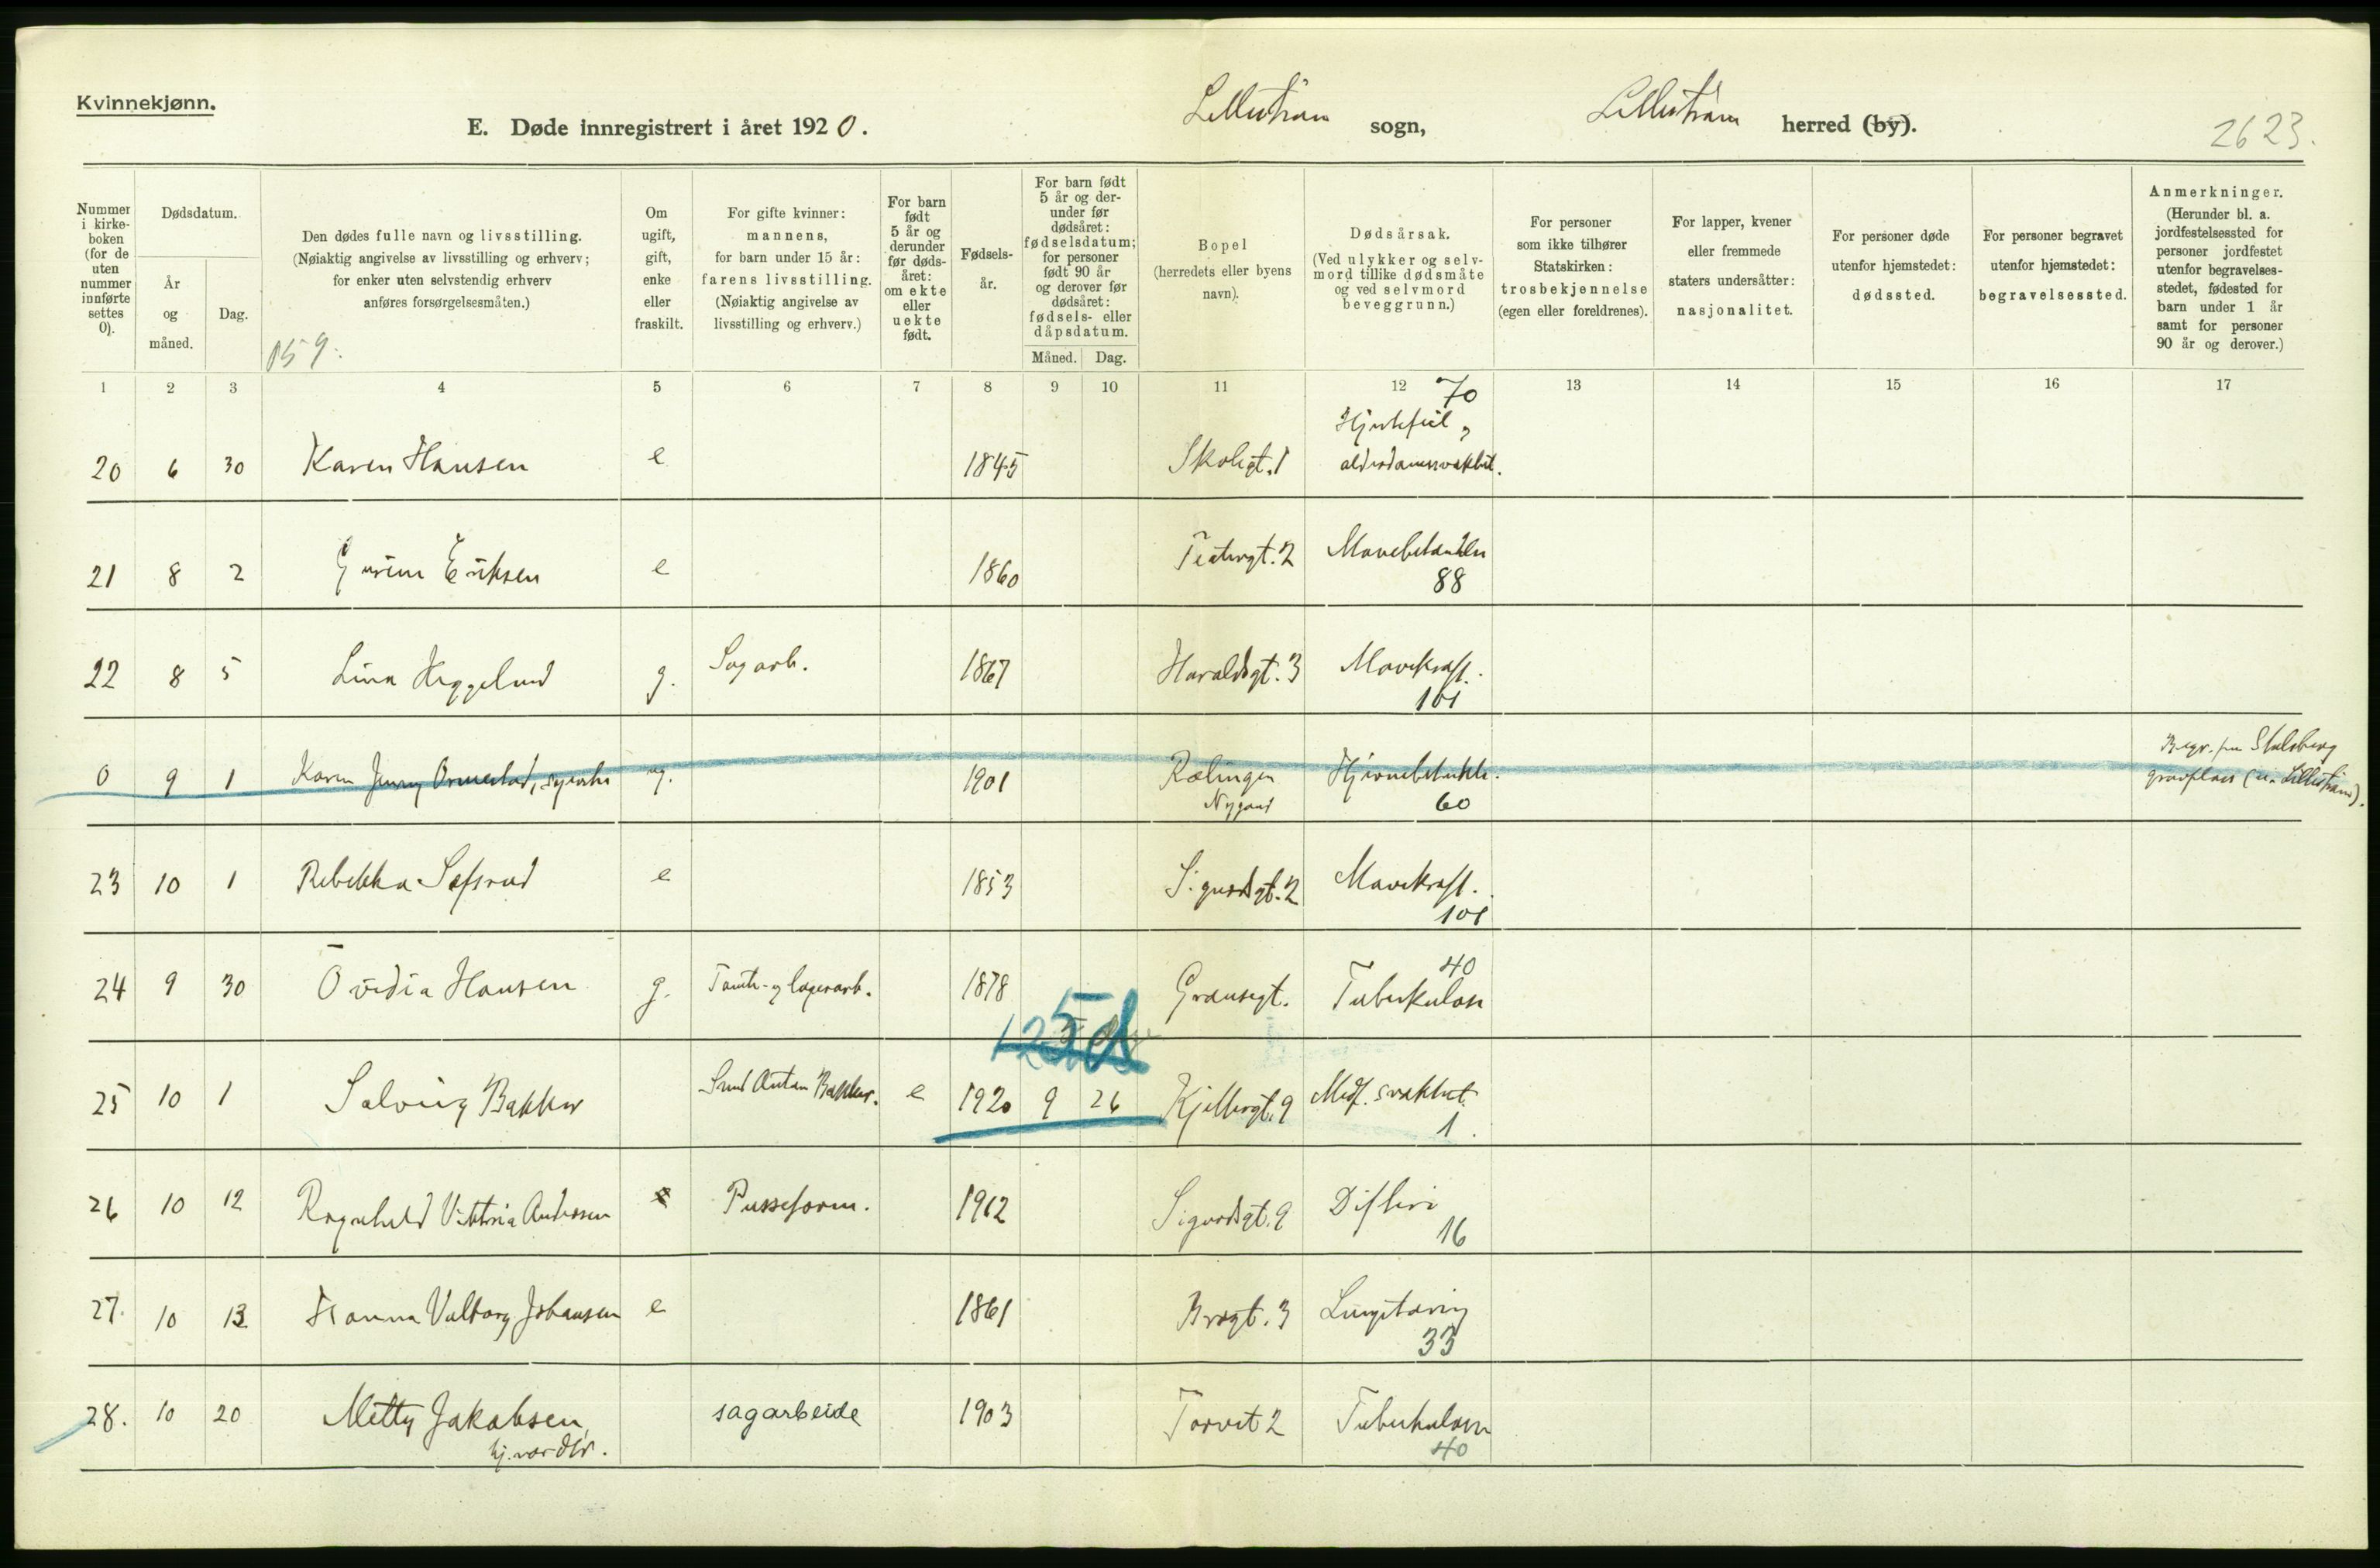 Kvinnekjønn.
E. Døde innregistrert i året 1920. Lillestrøm sogn, Lillestrøm herred (by). 2623.
Nummer i kirkeboken (for de uten nummer innførte settes 0).
Dødsdatum.
År og måned.
Dag.
Den dødes fulle navn og livsstilling. (Nøiaktig angivelse av livsstilling og erhverv; for enker uten selvstendig erhverv anføres forsørgelsesmåten.)
159.
Om ugift, gift, enke eller fraskilt.
For gifte kvinner: mannens, for barn under 15 år: farens livsstilling. (Nøiaktig angivelse av livsstilling og erhverv.)
For barn født 5 år og derunder før dødsåret: om ekte eller uekte født.
Fødselsår.
For barn født 5 år og derunder før dødsåret: fødselsdatum; for personer født 90 år og derover før dødsåret: fødsels- eller dåpsdatum.
Måned. Dag.
Bopel (herredets eller byens navn).
Dødsårsak. (Ved ulykker og selvmord tillike dødsmåte og ved selvmord beveggrunn.)
For personer som ikke tilhører Statskirken: trosbekjennelse (egen eller foreldrenes).
For lapper, kvener eller fremmede staters undersåtter: nasjonalitet.
For personer døde utenfor hjemstedet: dødssted.
For personer begravet utenfor hjemstedet: begravelsessted.
Anmerkninger. (Herunder bl. a. jordfestelsessted for personer jordfestet utenfor begravelsesstedet, fødested for barn under 1 år samt for personer 90 år og derover.)
1 2 3 4 5 6 7 8 9 10 11 12 13 14 15 16 17
70
20 6 30 Karen Hansen e 1845 Skolegt. 1 Hjertefeil, alderdomssvakhet.
21 8 2 Gurine Eriksen e 1860 Teatergt. 2 Mavebetændelse
88
22 8 5 Lina Heggelund g. Sagarb. 1867 Haraldsgt. 3 Mavekræft.
101
0 9 1 Karen Jenny Ormestad, syerske ug. 1901 Rælingen Hjernebetændelse.
Nygard 60
Begr. fra Stalsberg
gravplass (i Lillestrøm).
23 10 1 Rebekka e 1853 Sigurdsgt. 2 Mavekræft.
101
24 9 30 Ovidia Hansen g. Tomte- og lagerarb. 1878 Grensegt. Tuberkulose
40
5 d
25 10 1 Solveig Bakken Smed Anton Bakken. e 1920 9 26 Kjellergt. 9 Medf. svakhet.
1.
26 10 12 Ragnhild Viktoria Andersen Pusseform. 1912 Sigurdsgt. 9 Difteri
16
27. 10 13 Hanna Valborg Johansen e 1861 Brogt. 3 Lungetæring
33
28. 10 20 Metty Jakobsen, sagarbeide 1903 Torvet 2 Tuberkulose
hj. værdtr. 40